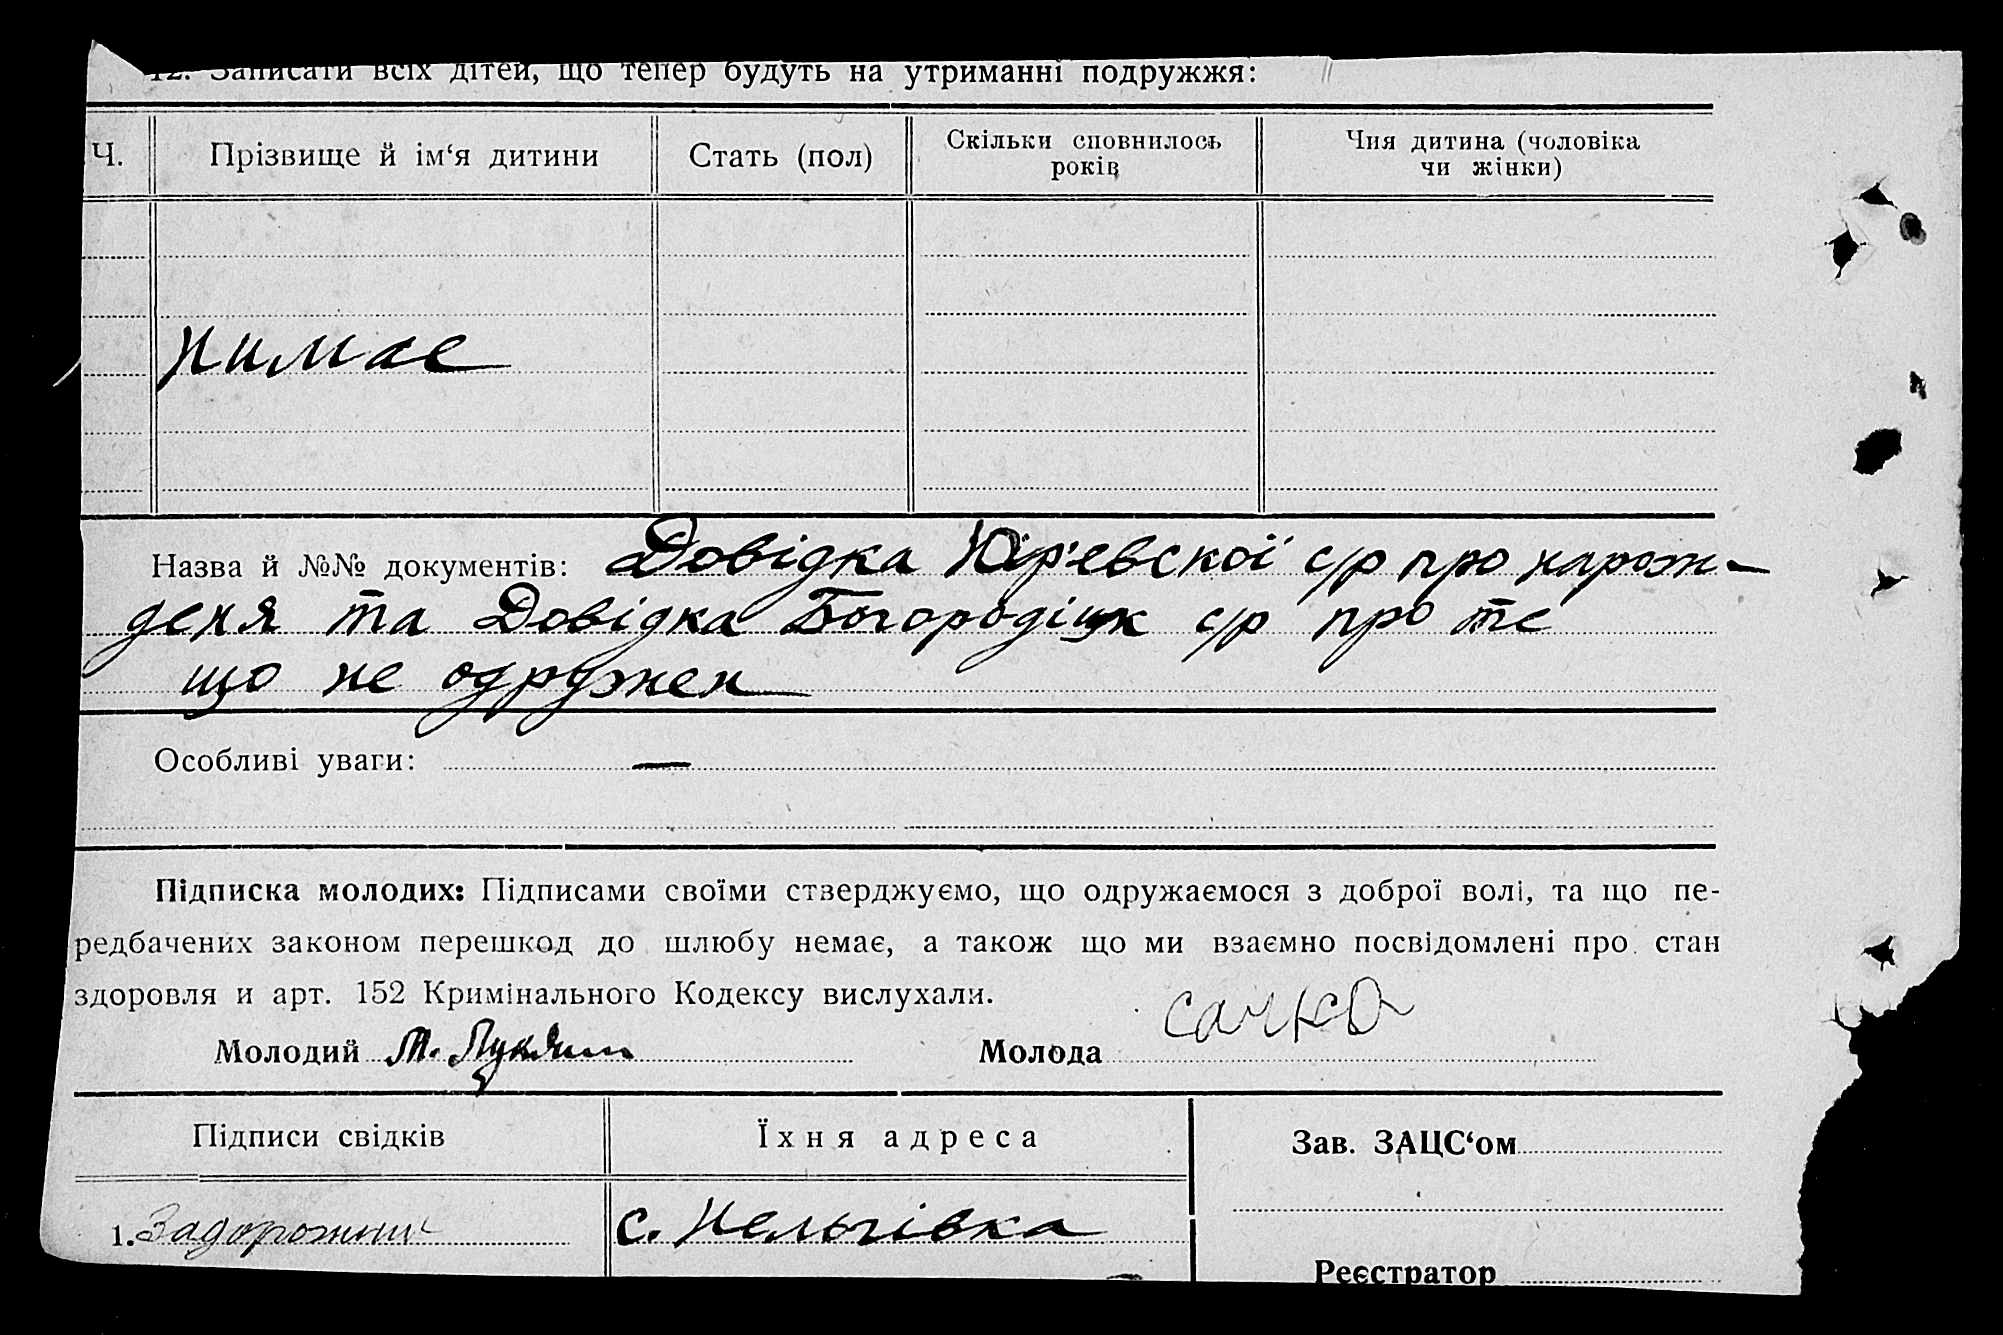 12. Записати всіх дітей, що тепер будуть на утриманні подружжя:
Ч. Прізвище й ім‘я дитини Стать (пол) Скільки сповнилось років Чия дитина (чоловіка чи жінки)
нимає
Назва й №№ документів: Довідка Юр'евскої с/р про нарож-
деня та Довідка Богородіцк с/р про те
що не одружен
Особливі уваги: —
Підписка молодих: Підписами своїми стверджуємо, що одружаємося з доброї волі, та що пе-
редбачених законом перешкод до шлюбу немає, а також що ми взаємно посвідомлені про стан
здоровля и арт. 152 Кримінального Кодексу вислухали.
Молодий М. Молода сачко
Підписи свідків Їхня адреса Зав. ЗАЦС‘ом
1. с. Нельгівка
Реєстратор